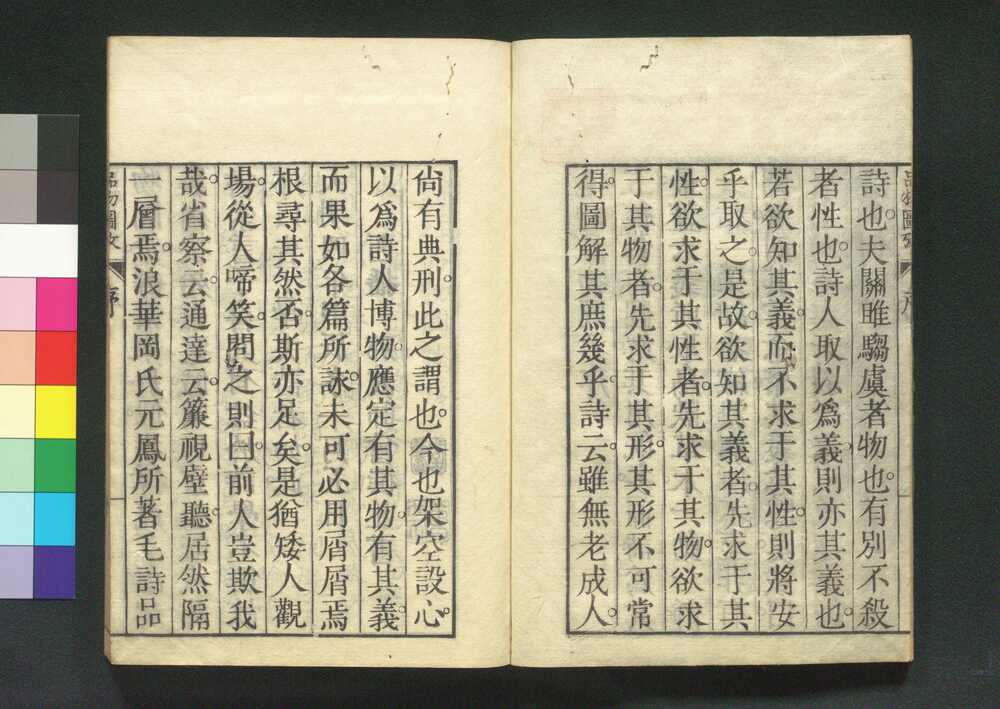 詩也。夫關雎騶虞者物也。有別不殺
者性也。詩人取以爲義、則亦其義也。
若欲知其義、而不求于其性、則將安
乎取之。是故欲知其義者。先求于其
性。欲求于其性者。先求于其物。欲求
于其物者。先求于其形。其形不可常
得。圖解其庶幾乎。詩云。雖無老成人。
尙有典刑。此之謂也。今也架空設心。
以爲詩人博物。應定有其物。有其義。
而果如各篇所詠。未可必用屑屑焉
根尋其然否。斯亦足矣。是猶矮人觀
場。從人啼笑。問之則曰。前人豈欺我
哉。省察云。通達云。簾視壁聽。居然隔
一層焉。浪華岡氏元鳳所著毛詩品